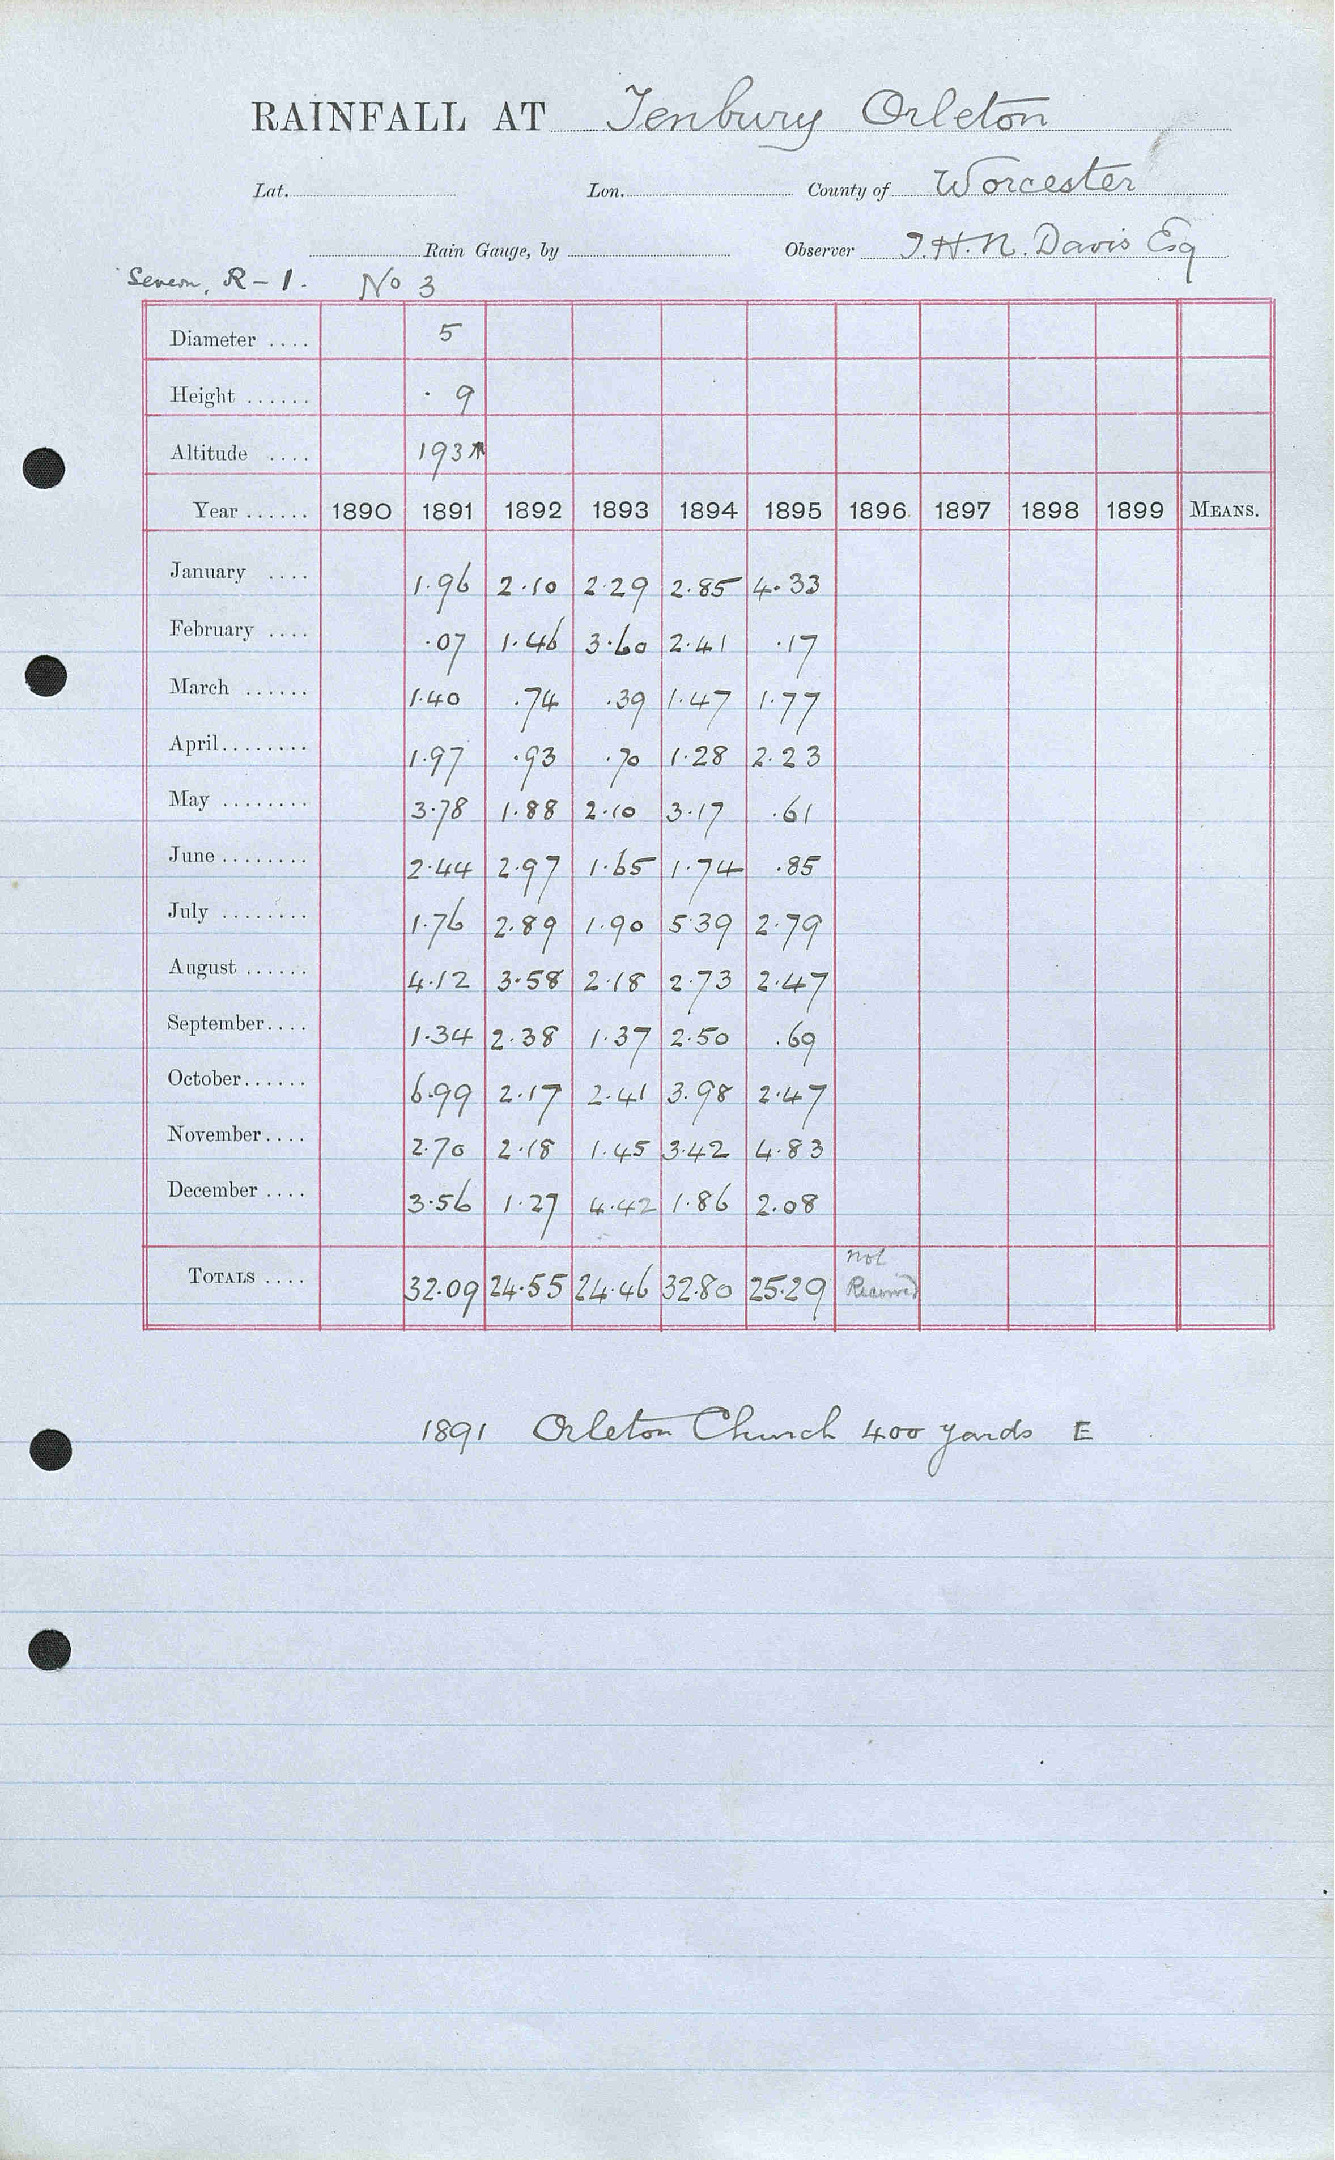 RAINFALL AT Tenbury Orleton
Lat. Lon. County of Worcester
Rain Gauge, by Observer J.H.N. Davis Esq
Severn, R-1. No 3
Diameter .... 5
Height ...... . 9
Altitude .... 193↑
Year ...... 1890 1891 1892 1893 1894 1895 1896 1897 1898 1899 MEANS.
January .... 1.96 2.10 2.29 2.85 4.33
February .... .07 1.46 3.60 2.41 .17
March ...... 1.40 .74 .39 1.47 1.77
April........ 1.97 .93 .70 1.28 2.23
May ........ 3.78 1.88 2.10 3.17 .61
June........ 2.44 2.97 1.65 1.74 .85
July ........ 1.76 2.89 1.90 5.39 2.79
August ...... 4.12 3.58 2.18 2.73 2.47
September.... 1.34 2.38 1.37 2.50 .69
October...... 6.99 2.17 2.41 3.98 2.47
November.... 2.70 2.18 1.45 3.42 4.83
December .... 3.56 1.27 4.42 1.86 2.08
TOTALS .... 32.09 24.55 24.46 32.80 25.29 not Received
1891 Orleton Church 400 yards E